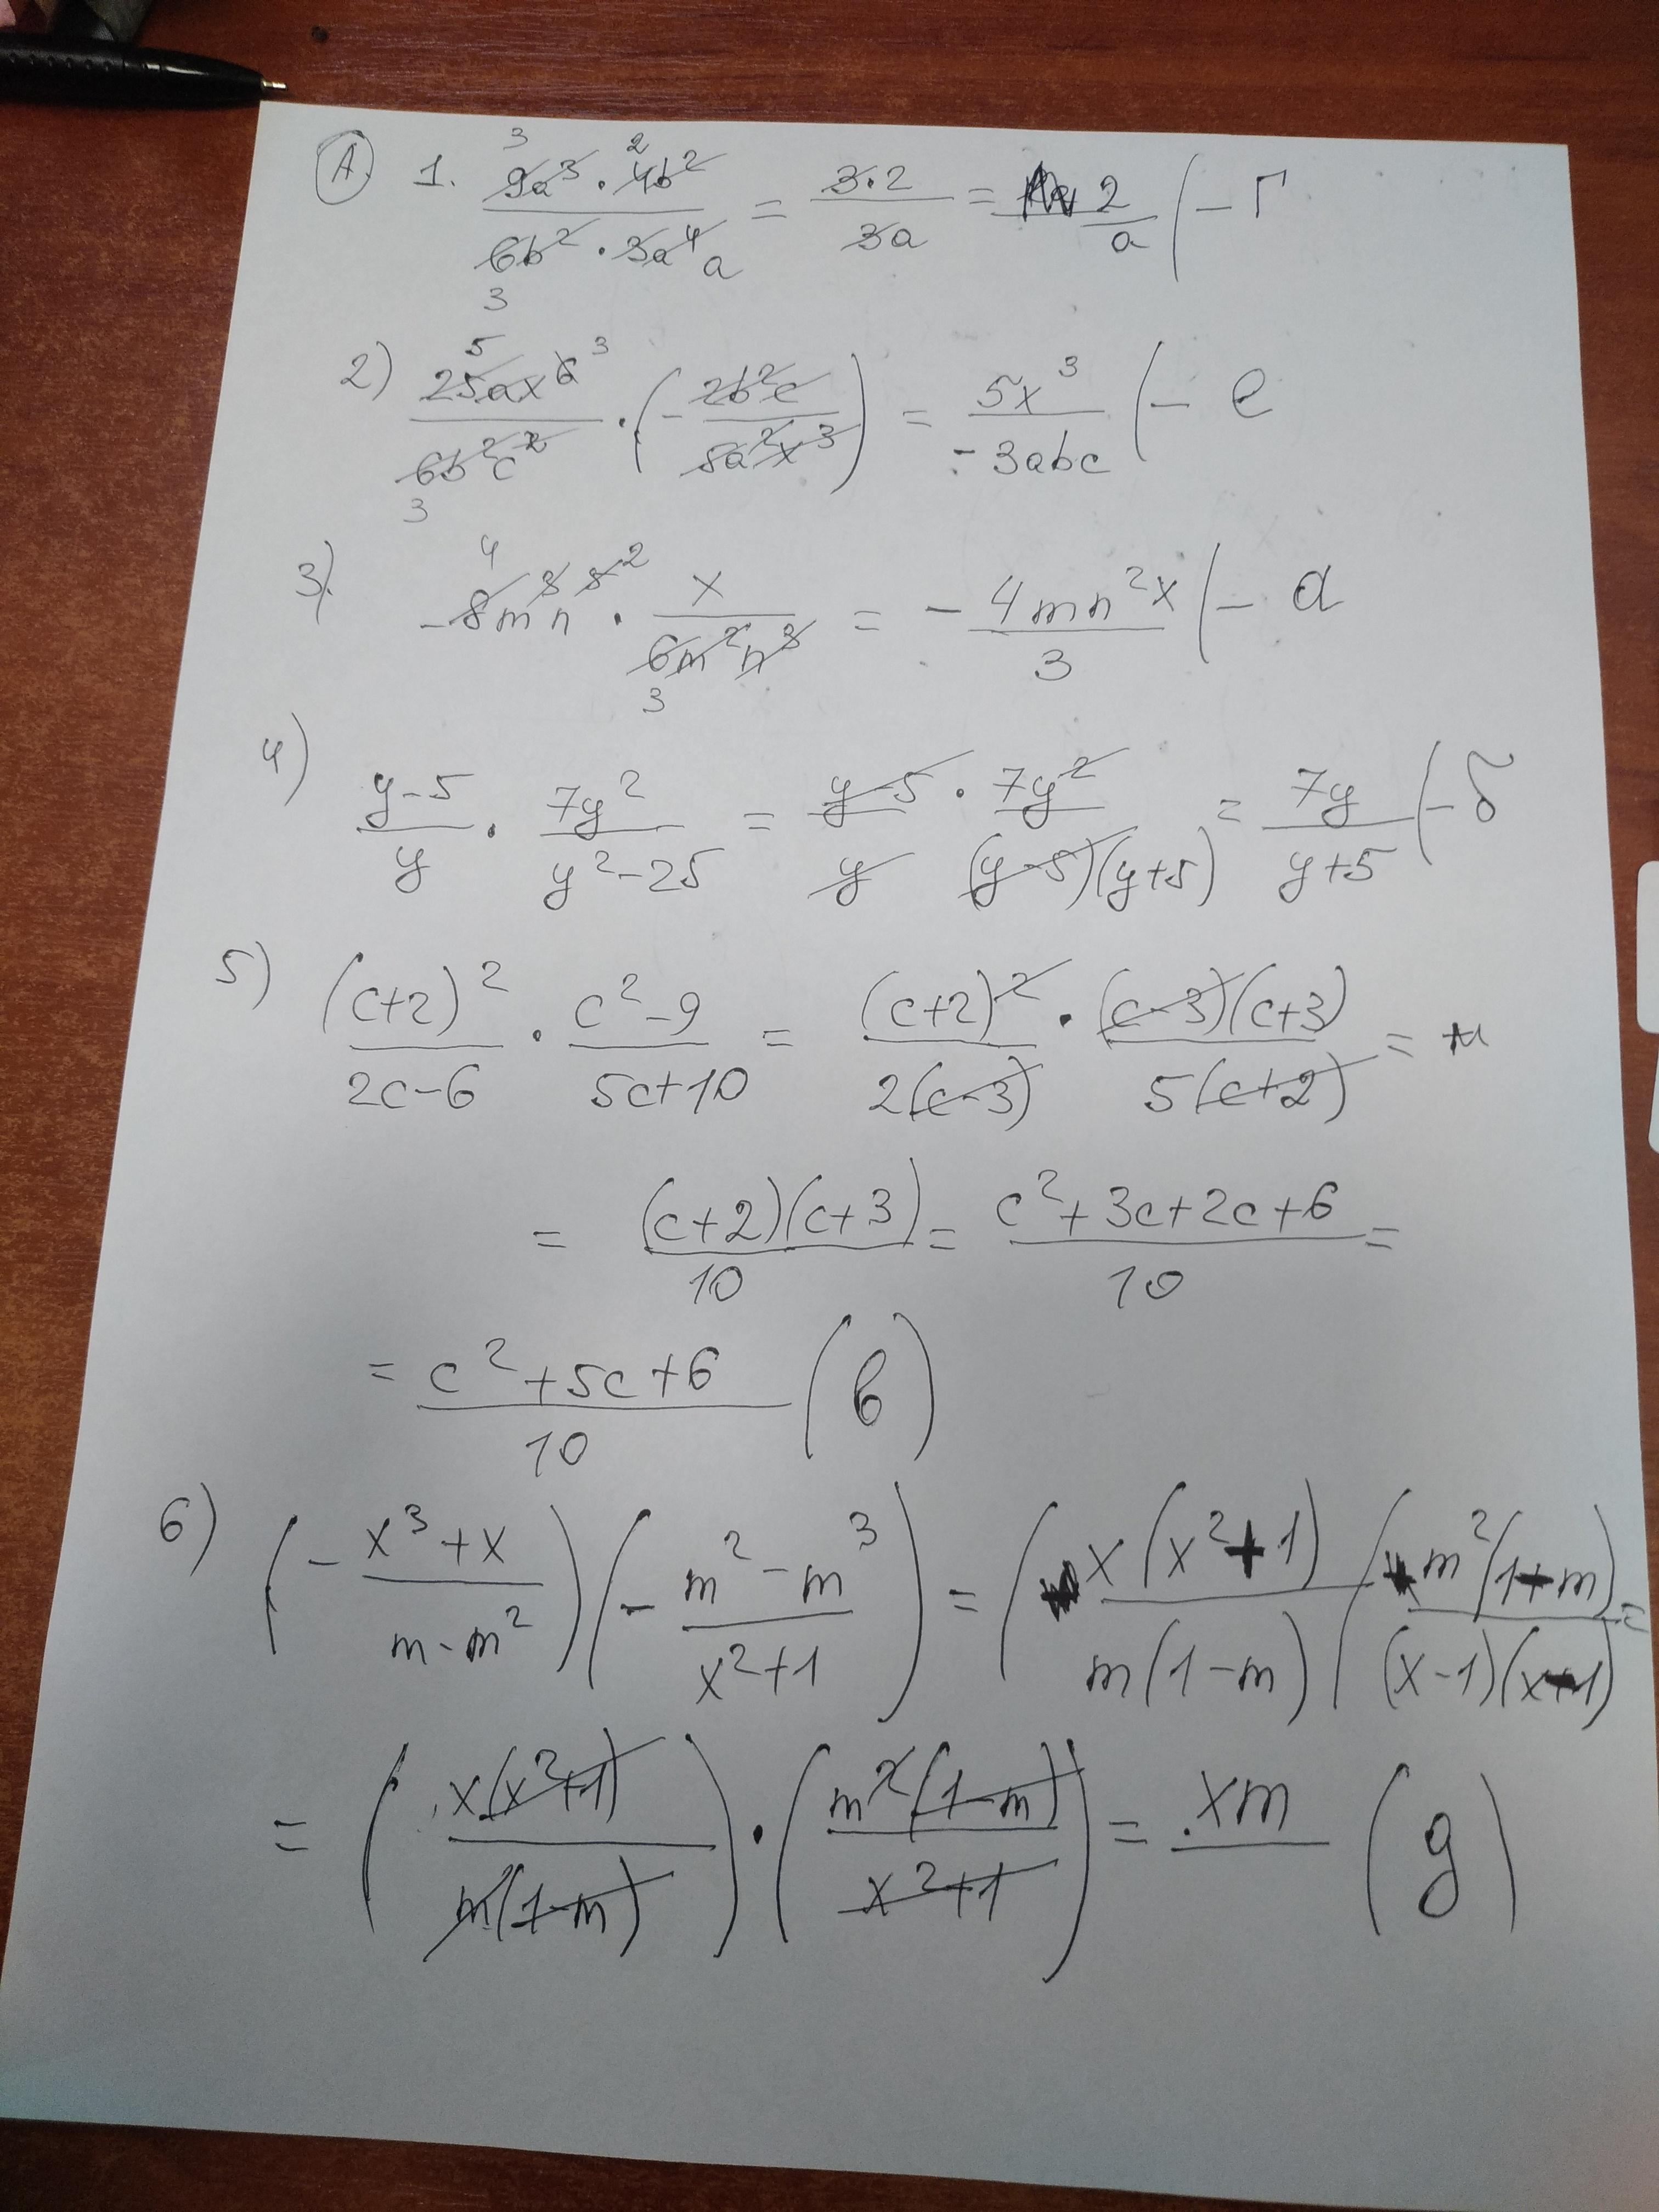 А. 1. (9a³ · 4b²)/(6b² · 3a⁴) = (3·2)/(3a) = 2/a (– Г
2) (25ax⁶)/(6b²c²) · (– (2b²c)/(5a²x³)) = (5x³)/(–3abc) (– е
3) –8m³n⁵ · x/(6m²n³) = – (4mn²x)/3 (– а
4) (y–5)/y · (7y²)/(y²–25) = (y–5 · 7y²)/(y (y–5)(y+5)) = (7y)/(y+5) (– б
5) (c+2)²/(2c–6) · (c²–9)/(5c+10) = (c+2)²/(2(c–3)) · ((c–3)(c+3))/(5(c+2)) =
= ((c+2)(c+3))/10 = (c²+3c+2c+6)/10 =
= (c²+5c+6)/10 (в)
6) (– (x³+x)/(m–m²)) (– (m²–m³)/(x²+1)) = (x(x²+1)/(m(1–m) (m²(1–m)/((x–1)(x+1) =
= (x(x²+1)/(m(1–m))) · (m²(1–m)/(x²+1)) = xm (g)